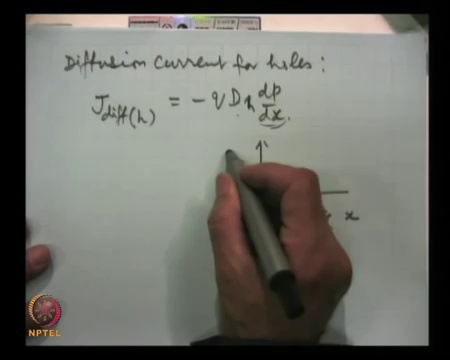 Diffusion current for holes :
J_diff(h) = - q D_h dp/dx .
x
NPTEL